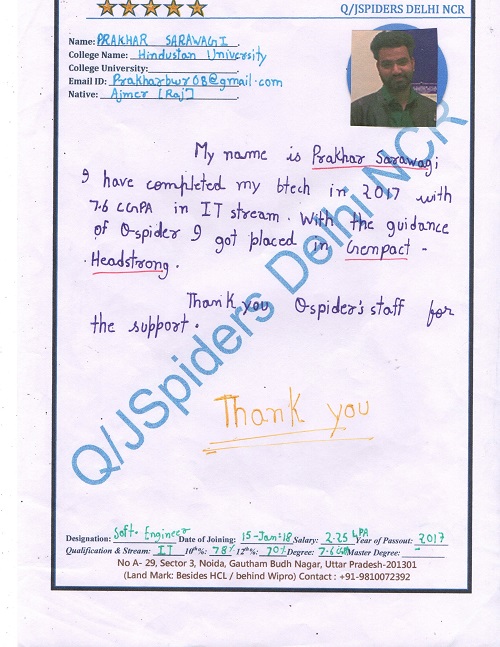 Q/JSPIDERS DELHI NCR
Name: PRAKHAR SARAWAGI
College Name: Hindustan University
College University:
Email ID: Prakharbwr08@gmail.com
Native: Ajmer [Raj]
My name is Prakhar Sarawagi
I have completed my btech in 2017 with
7.6 CGPA in IT stream. With the guidance
of Q-spider I got placed in Genpact -
Headstrong.
Thank you Q-spider's staff for
the support.
Q/JSpiders Delhi NCR
Thank you
Designation: Soft. Engineer Date of Joining: 15-Jan-18 Salary: 2.25 LPA Year of Passout: 2017
Qualification & Stream: IT 10th%: 78% 12th%: 70% Degree: 7.6 CGPA Master Degree: -
No A- 29, Sector 3, Noida, Gautham Budh Nagar, Uttar Pradesh-201301
(Land Mark: Besides HCL / behind Wipro) Contact : +91-9810072392